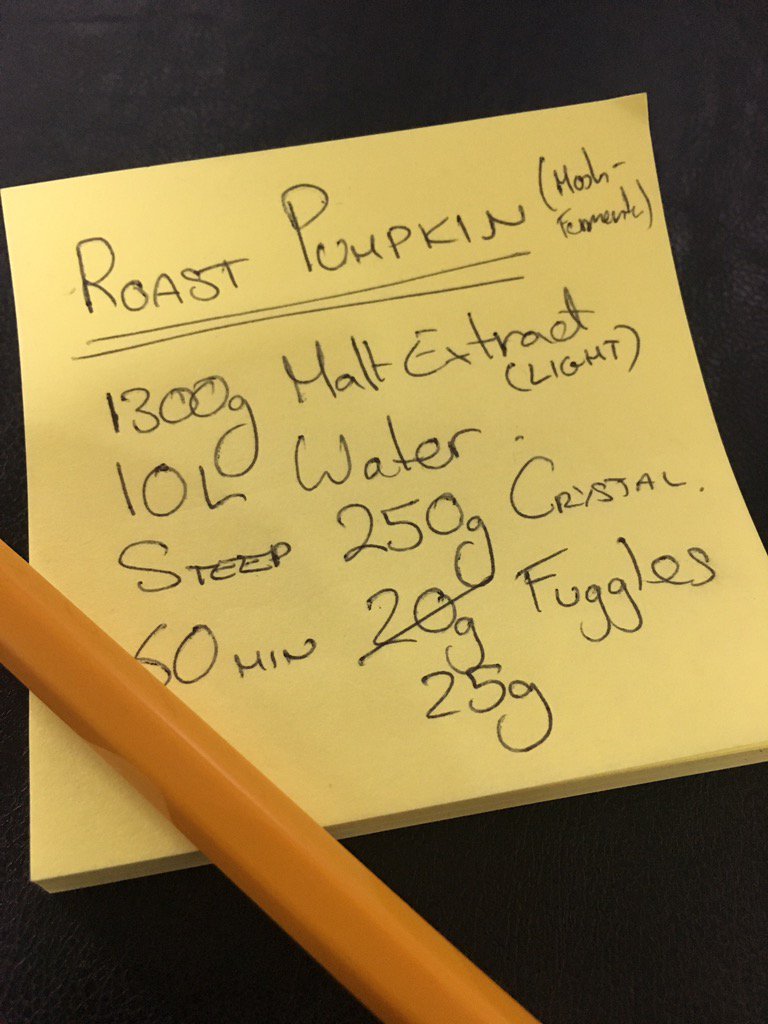 ROAST PUMPKIN (Mash-
Fermente)
1300g Malt Extract
(LIGHT)
10L Water.
STEEP 250g CRYSTAL.
60 MIN 20g Fuggles
25g